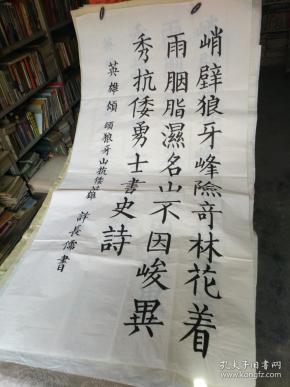 峭壁狼牙峰險奇林花着
雨胭脂濕名山不因峻異
秀抗倭勇士書史詩
英雄頌 頌狼牙山抗倭英雄
許長儒書
孔夫子旧书网